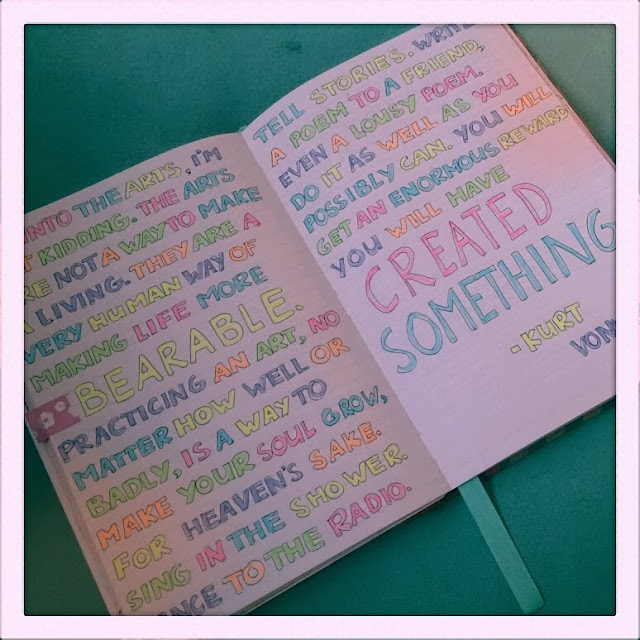 INTO THE ARTS, I'M
T KIDDING. THE ARTS
RE NOT A WAY TO MAKE
A LIVING. THEY ARE A
VERY HUMAN WAY OF
MAKING LIFE MORE
BEARABLE.
PRACTICING AN ART, NO
MATTER HOW WELL OR
BADLY, IS A WAY TO
MAKE YOUR SOUL GROW,
FOR HEAVEN'S SAKE.
SING IN THE SHOWER.
NCE TO THE RADIO.
TELL STORIES. WRITE
A POEM TO A FRIEND,
EVEN A LOUSY POEM.
DO IT AS WELL AS YOU
POSSIBLY CAN. YOU WILL
GET AN ENORMOUS REWARD
YOU WILL HAVE
CREATED
SOMETHING
- KURT
VONN